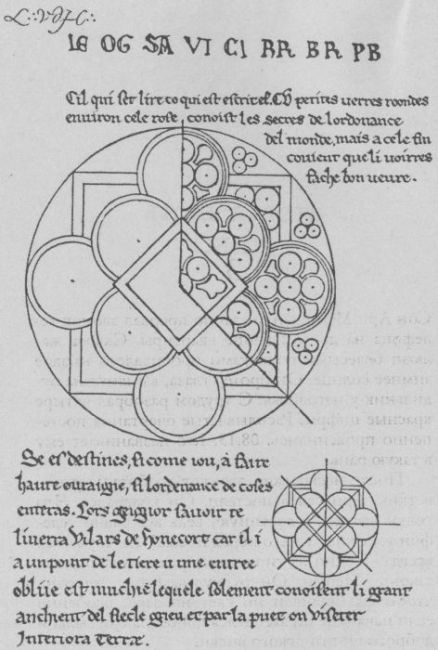 IE OG SA VI CI RR BR PB
Cil qui set lire co qui est escrit el CV petites uerres roondes
environ cele rose, conoist les secres de lordonance
del monde, mais a cele fin
couient que li uoirres
fache bon ueure.
Se es destines, si come iou, à faire
haute ouraigne, si lordenance de coses
enteras. Lors grignor sauoir te
liuerra Vilars de Honecort car il i
a un point de le tiere u une entree
obliie est muchie lequele solement conoissent li grant
anchien del siecle grieu et par la puet on Visiter
Interiora Terrae.